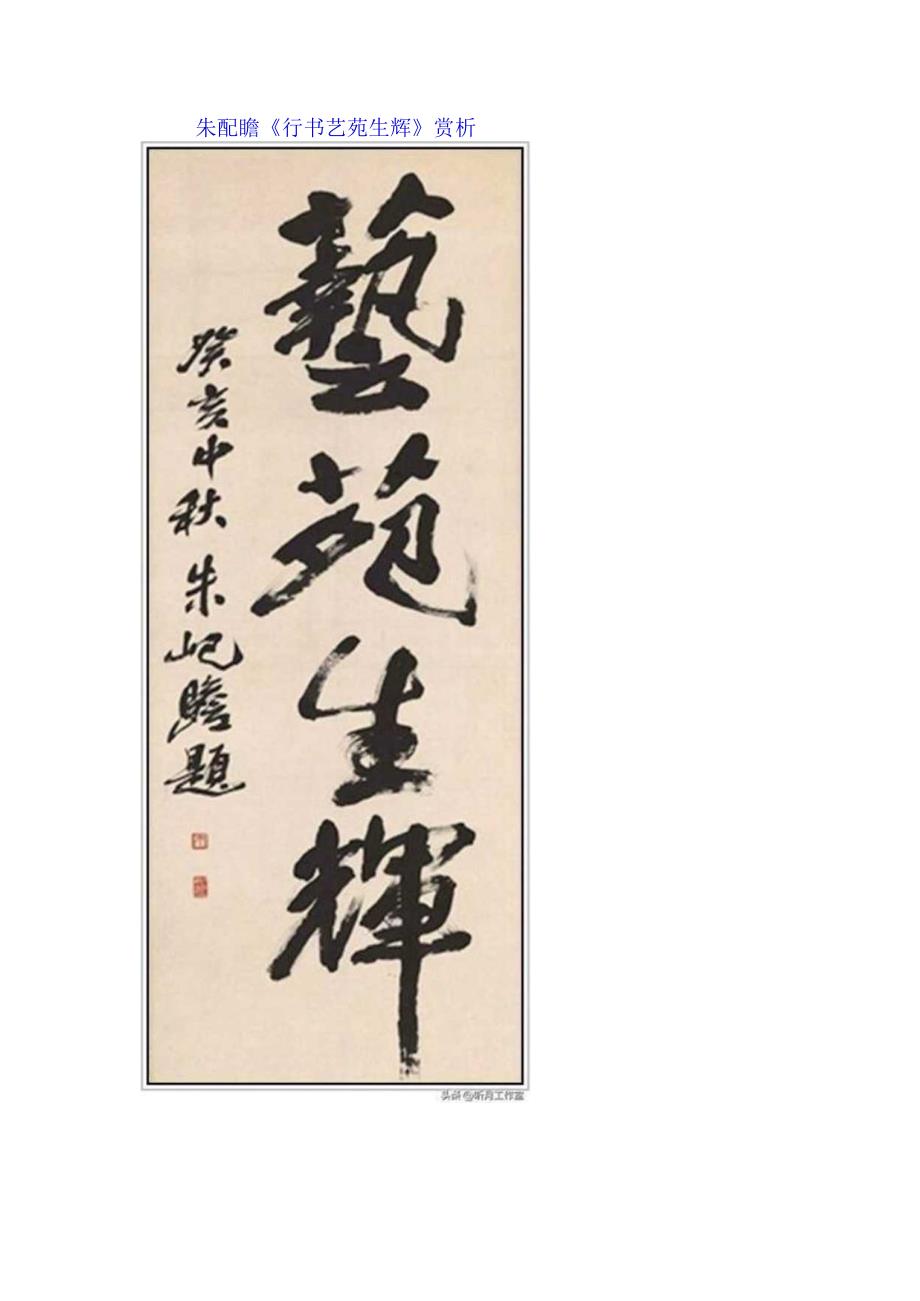 朱配瞻《行书艺苑生辉》赏析
藝苑生輝
癸亥中秋 朱屺瞻題
头条@听月工作室